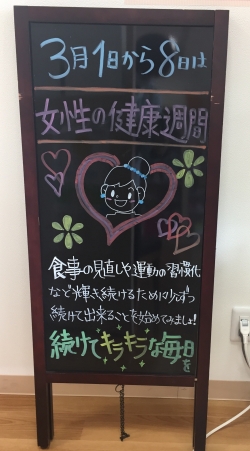 3月1日から8日は
女性の健康週間
食事の見直しや運動の習慣化
など輝き続けるために少しずつ
続けて出来ることを始めてみましょ!
続けてキラキラな毎日を